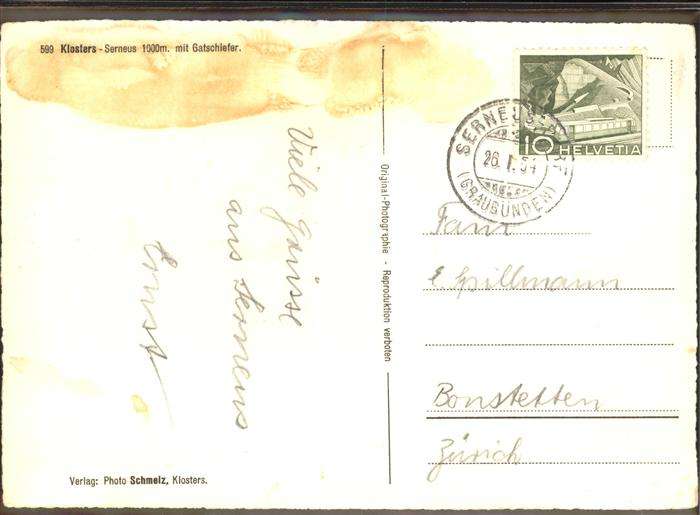 599 Klosters - Serneus 1000m. mit Gatschiefer.
Viele Grüsse
aus Serneus
Ernst
Verlag: Photo Schmelz, Klosters.
Original-Photographie - Reproduktion verboten
10 HELVETIA
SERNEUS DORF
26. I. 54
(GRAUBÜNDEN)
Fam
E. Spillmann
Bonstetten
Zürich